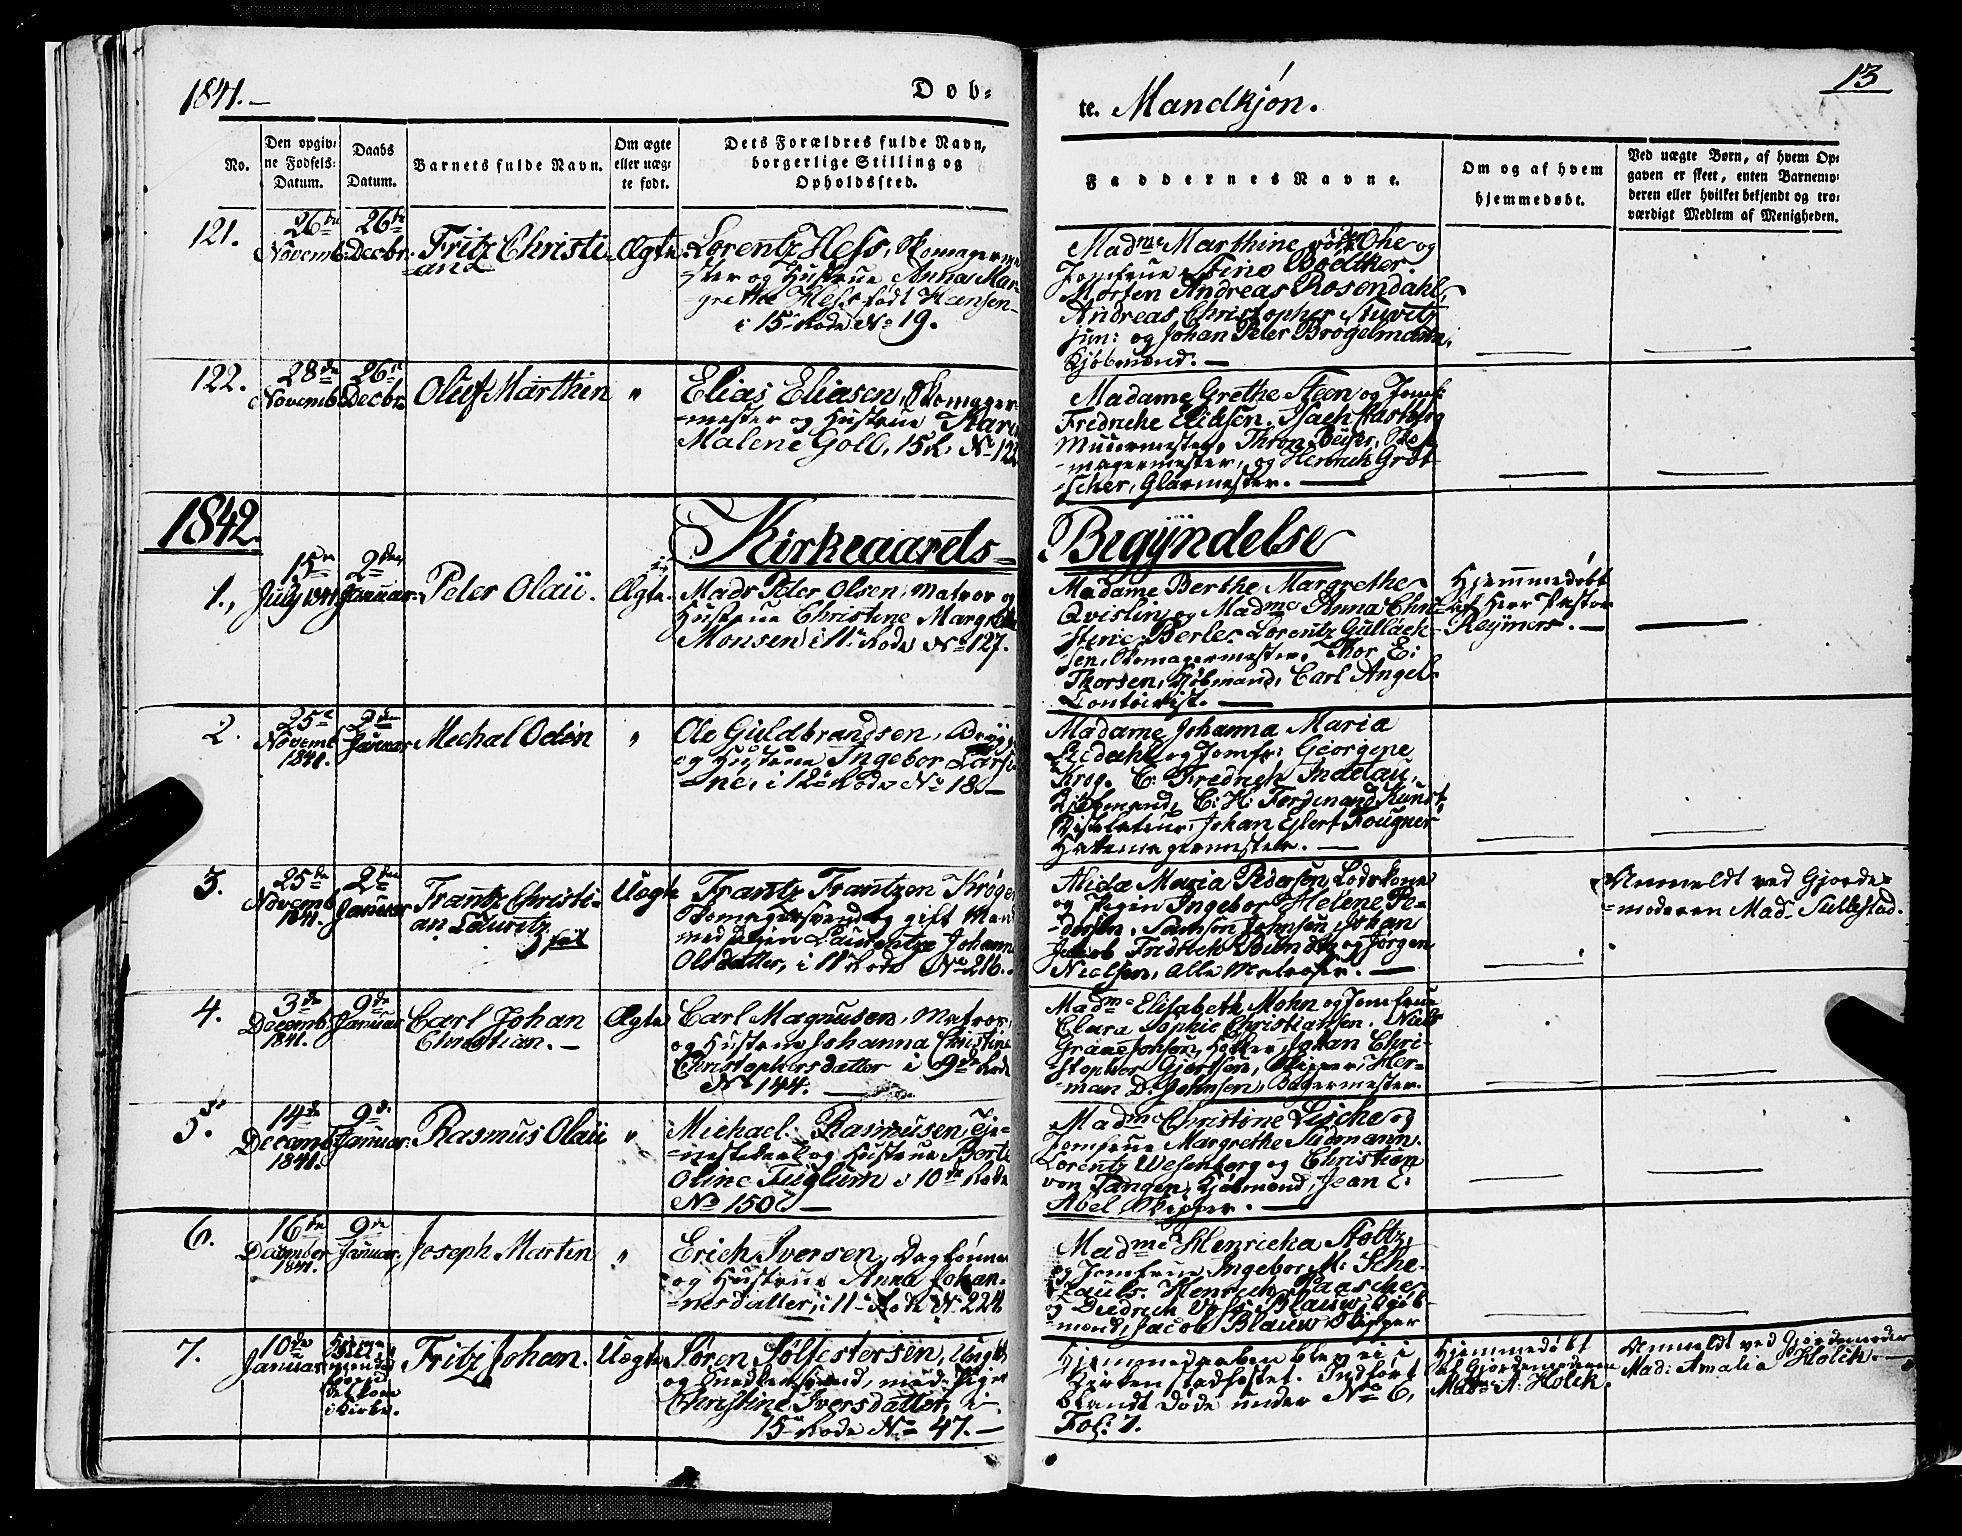 1841.
Døb-
te. Mandkjøn.
13
No.
Den opgiv-
ne Fødsels-
Datum.
Daabs
Datum.
Barnets fulde Navn.
Om ægte
eller uæg-
te født.
Dets Forældres fulde Navn,
borgerlige Stilling og
Opholdssted.
Faddernes Navne.
Om og af hvem
hjemmedøbt.
Ved uægte Børn, af hvem Op-
gaven er skeet, enten Barnemo-
deren eller hvilket bekjendt og tro-
værdigt Medlem af Menigheden.
121.
26de
Novemb.
26de
Decbr.
Fritz Christi-
an
Ægte
Lorentz Hess, Skomagerme
ster og Hustrue Anna Mar
grethe Hess født Hansen
i 15 Rode No 19.
Madme Marthine Ohe og
Jomfrue Stine Bødtker.
Morten Andreas Rosendahl,
Andreas Christopher Stuvitz
jun: og Johan Peter Brøgelmann,
Kjøbmænd. —
122.
28de
Novemb.
26de
Decbr.
Oluf Marthin
"
Elias Eliasen, Skomager-
mester og Hustrue Karen
Malene Goll, 15 R. No 122
Madame Grethe Steen og Jomf:
Fredrikke Eliasen. Isach Hasberg
Muurmester, Thron Buhr, Sko-
magermester, og Henrich Grøt-
scher, Glarmester. —
1842.
Kirkeaarets-
Begyndelse
1.,
15de
July 1841
2den
Januar.
Peter Olaü.
Ægte.
Mads Peter Olsen, Matros og
Hustrue Christine Margrethe
Monsen i 11 Rode No 127.
Madame Berthe Margrethe
Qvislin og Madme Anna Chri-
stine Berle. Lorentz Gullach-
sen, Skomagermester. Thor E:
Thorsen, Kjøbmand, Carl Angel
Contorist. —
Hjemmedøbt
af Herr Pastor
Reymers. —
2.
25de
Novemb
1841.
2den
Januar
Mechal Odin
"
Ole Guldbrandsen, Brygge
og Hustrue Ingebor Lars
ne, i 12 Rode No 18. —
Madame Johanna Maria
Lledahl og Jomfr: Georgene
Krog. C. Fredrich Indetau,
Kjøbmand, C: H: Ferdinand Kunst,
Distelateur, Johan Eylert Fougner
Hattemagermester. —
3.
25de
Novemb
1841.
2den
Januar
Frantz Christi-
an Lauritz.
Uægte
Frantz Frantzen Krøger
Skomagersvend og gift Mand
med Pigen Laurentze Johanne
Olsdatter, i 11 Rode No 216.
Alida Maria Pedersen Lodskone
og Pigen Ingebor Helene Pe-
dersen. Samson Johnsen Johan
Jacob Fredrich Bunde og Jørgen
Nielsen, alle Matroser. —
Anmeldt ved Gjorde-
moderen Mad. Sullestad.
4.
3de
Decemb.
1841.
9de
Januar
Carl Johan
Christian. —
Ægte
Carl Magnusen, Matros,
og Hustrue Johanna Christine
Christophersdatter i 9de Rode
No 144. —
Madme Elisabeth Mohn og Jomfrue
Clara Sophie Christiansen. Niels
Grane Jonsen, Høker, Johan Chri-
stopher Gjertsen, Skipper, Her-
man D. Johnsen, Bagermester.
5.
14de
Decemb
1841.
9de
Januar.
Rasmus Olaü
"
Michael Rasmusen, Tje-
nestekarl og Hustrue Berte
Oline Fuglum i 10de Rode
No 150. —
Madme Christine Lische og
Jomfrue Margrethe Sudmann.
Lorentz Wesenberg og Christian
von Tangen, Kjøbmænd, Jean C:
Abel Skipper. —
6.
16de
December
1841.
9de
Januar.
Joseph Martin
"
Erich Iversen, Dagløner
og Hustrue Anna Johan-
nesdatter, i 11 Rode No 224
Madme Henricka Stoltz,
og Jomfrue Ingebor M: Sche-
Henrich Paasche
og Diedrich Voss Blauw, Kjøb-
mænd, Jacob Blauw Skipper
7.
10de
Januar
Fritz Johan.
Uægte
Søren Sølfestersen, Ungk
og Snedkersvend, med Pigen
Christine Iversdatter, i
15 Rode No 47. —
Hjemmedaaben blev ei i
Kirken stadfæstet. Indført
blandt døde under No 6,
Fol: 1.
Hjemmedøbt
af Gjordemoderen
Mad: A: Holck.
Anmeldt ved Gjordemoder
Mad: Amalia Holck. —